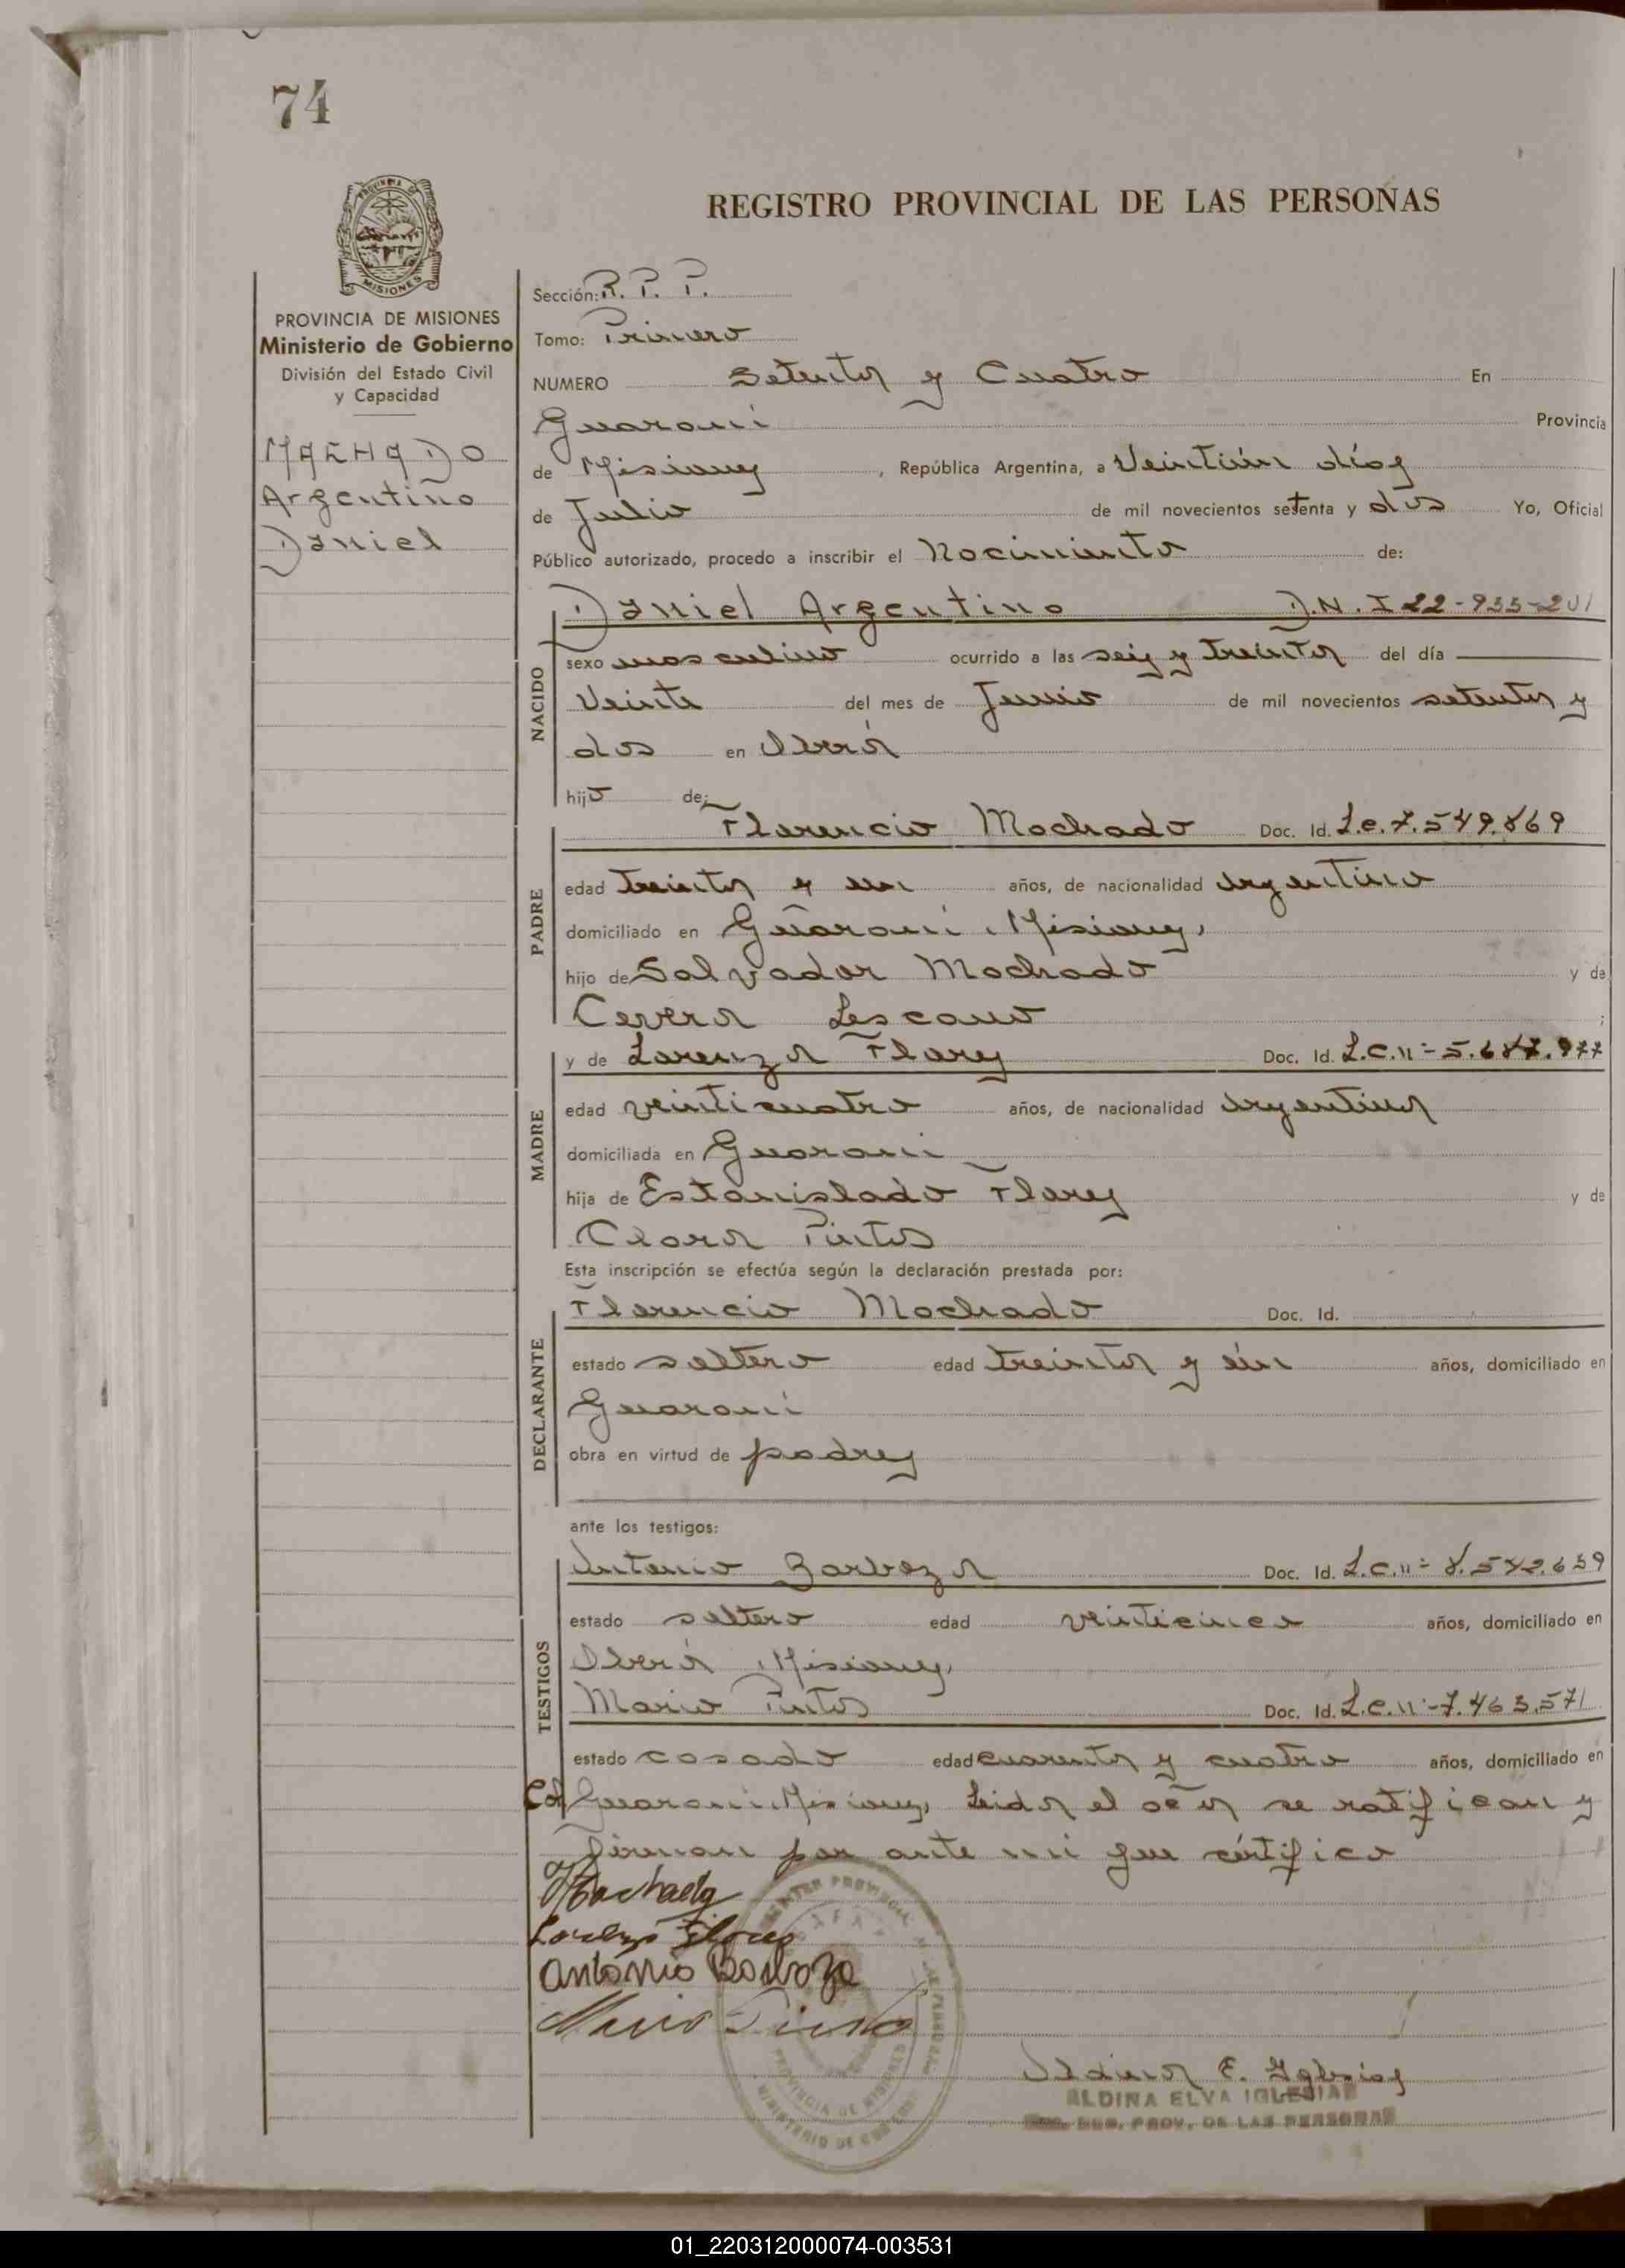 74
PROVINCIA DE MISIONES
Ministerio de Gobierno
División del Estado Civil
y Capacidad
MACHADO
Argentino
Daniel
REGISTRO PROVINCIAL DE LAS PERSONAS
Sección: R. P. P.
Tomo: Primero
NUMERO Setenta y Cuatro En
Guaraní Provincia
de Misiones, República Argentina, a Veintiún días
de Julio de mil novecientos setenta y dos Yo, Oficial
Público autorizado, procedo a inscribir el Nacimiento de:
Daniel Argentino D.N.I 22-935-201
NACIDO
sexo masculino ocurrido a las seis y treinta del día
Veinte del mes de Junio de mil novecientos setenta y
dos en Oberá
hijo de:
Florencio Machado Doc. Id. L.e. 7.549.869
PADRE
edad treinta y un años, de nacionalidad argentino
domiciliado en Guaraní, Misiones,
hijo de Salvador Machado y de
Cevera Lescano ;
y de Lorenza Flores Doc. Id. L.C.n:- 5.687.977
MADRE
edad veinticuatro años, de nacionalidad argentina
domiciliada en Guaraní
hija de Estanislado Flores y de
Clara Pintos
Esta inscripción se efectúa según la declaración prestada por:
Florencio Machado Doc. Id.
DECLARANTE
estado soltero edad treinta y ún años, domiciliado en
Guaraní
obra en virtud de padres
ante los testigos:
Antonio Barboza Doc. Id. L.C.n:- 8.542.659
TESTIGOS
estado soltero edad veinticinco años, domiciliado en
Oberá, Misiones,
Mario Pintos Doc. Id. L.e.n:-7.463.571
estado casado edad cuarenta y cuatro años, domiciliado en
Guaraní Misiones, Leida el acta se ratifican y
firman por ante mi que cértifico
Machado
Lorenza Flores
Antonio Barboza
Mario Pintos
Aldina E. Iglesias
ALDINA ELVA IGLESIAS
REG. PROV. DE LAS PERSONAS
PROVINCIA DE MISIONES
MINISTERIO DE GOBIERNO
01_220312000074-003531